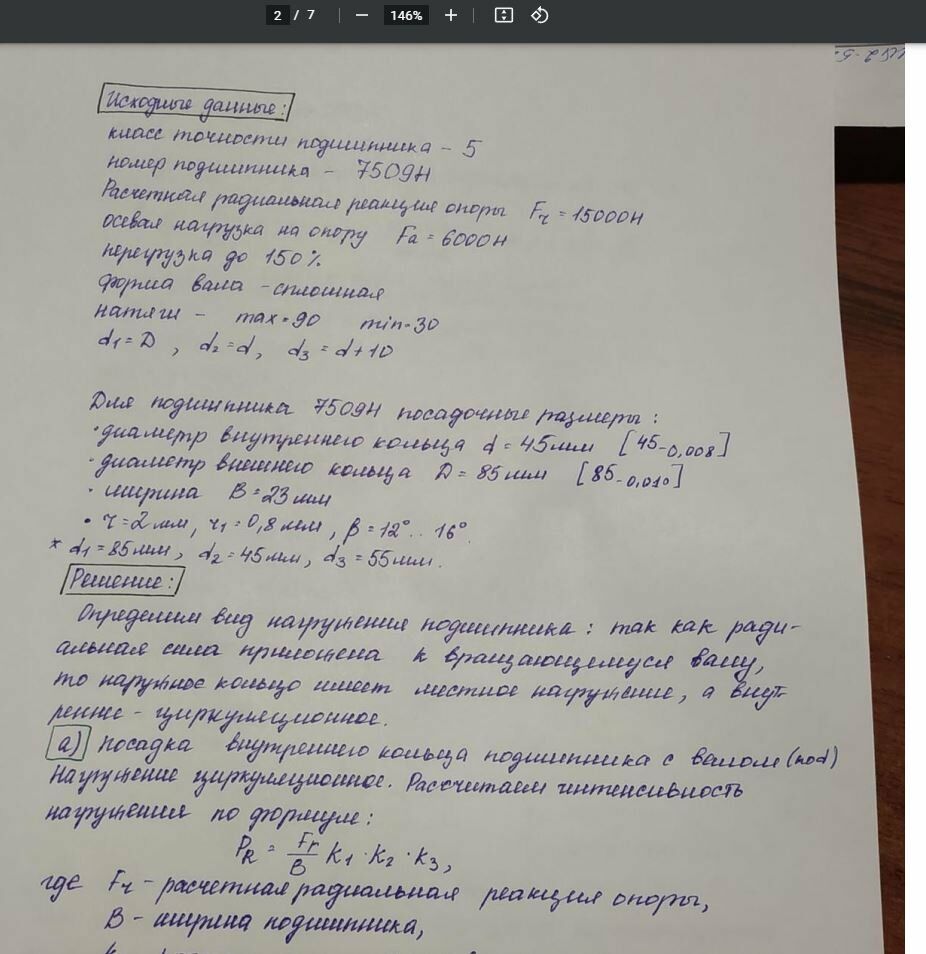 2 / 7 146%
Исходные данные:
класс точности подшипника - 5
номер подшипника - 7509Н
Расчетная радиальная реакция опоры Fr = 15000Н
осевая нагрузка на опору Fa = 6000Н
перегрузка до 150%
форма вала - сплошная
натяги - max=90 min=30
d1 = D , d2 = d, d3 = d+10
Для подшипника 7509Н посадочные размеры :
· диаметр внутреннего кольца d = 45мм [45-0,008]
· диаметр внешнего кольца D = 85мм [85-0,010]
· ширина B = 23мм
· r=2мм, r1=0,8мм, β=12°.. 16°.
* d1=85мм, d2=45мм, d3=55мм.
Решение:
Определим вид нагружения подшипника : так как ради-
альная сила приложена к вращающемуся валу,
то наружное кольцо имеет местное нагружение, а внут-
реннее - циркуляционное.
а) Посадка внутреннего кольца подшипника с валом (⌀d)
Нагружение циркуляционное. Рассчитаем интенсивность
нагружения по формуле :
PR = Fr/B K1 · K2 · K3,
где Fr - расчетная радиальная реакция опоры,
B - ширина подшипника,